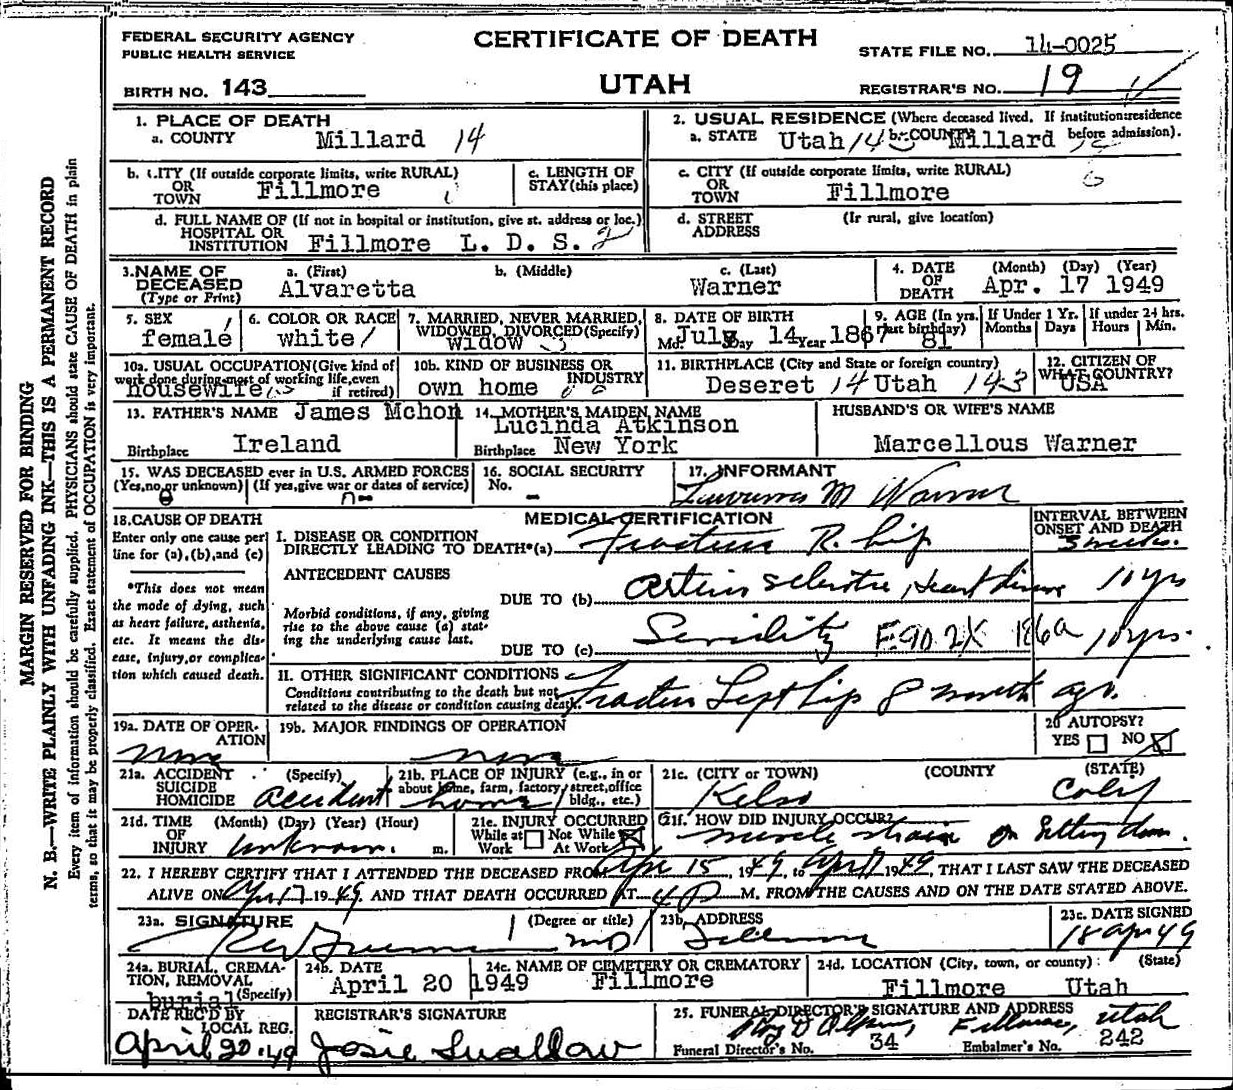 MARGIN RESERVED FOR BINDING
N. B.—WRITE PLAINLY WITH UNFADING INK—THIS IS A PERMANENT RECORD
Every item of information should be carefully supplied. PHYSICIANS should state CAUSE OF DEATH in plain
terms, so that it may be properly classified. Exact statement of OCCUPATION is very important.
FEDERAL SECURITY AGENCY
PUBLIC HEALTH SERVICE
BIRTH NO. 143
CERTIFICATE OF DEATH
UTAH
STATE FILE NO. 14-0025
REGISTRAR'S NO. 19
1. PLACE OF DEATH
a. COUNTY Millard 14
2. USUAL RESIDENCE (Where deceased lived. If institution:residence before admission).
a. STATE Utah 14 b. COUNTY Millard
b. CITY (If outside corporate limits, write RURAL)
OR TOWN Fillmore
c. LENGTH OF STAY (this place)
c. CITY (If outside corporate limits, write RURAL)
OR TOWN Fillmore
d. FULL NAME OF (If not in hospital or institution, give st. address or loc.)
HOSPITAL OR INSTITUTION Fillmore L. D. S.
d. STREET ADDRESS (Ir rural, give location)
3. NAME OF DECEASED (Type or Print)
a. (First) Alvaretta
b. (Middle)
c. (Last) Warner
4. DATE OF DEATH (Month) (Day) (Year)
Apr. 17 1949
5. SEX female
6. COLOR OR RACE white
7. MARRIED, NEVER MARRIED, WIDOWED, DIVORCED (Specify) widow
8. DATE OF BIRTH
Mo. July Day 14 Year 1867
9. AGE (In yrs. last birthday) 81
If Under 1 Yr. Months Days
If under 24 hrs. Hours Min.
10a. USUAL OCCUPATION (Give kind of work done during most of working life, even if retired) housewife
10b. KIND OF BUSINESS OR INDUSTRY own home
11. BIRTHPLACE (City and State or foreign country)
Deseret 14 Utah 143
12. CITIZEN OF WHAT COUNTRY? USA
13. FATHER'S NAME James Mchon
Birthplace Ireland
14. MOTHER'S MAIDEN NAME
Lucinda Atkinson
Birthplace New York
HUSBAND'S OR WIFE'S NAME
Marcellous Warner
15. WAS DECEASED ever in U.S. ARMED FORCES
(Yes, no or unknown) (If yes, give war or dates of service)
16. SOCIAL SECURITY No. -
17. INFORMANT
M Warner
18. CAUSE OF DEATH
Enter only one cause per line for (a), (b), and (c)
*This does not mean the mode of dying, such as heart failure, asthenia, etc. It means the disease, injury, or complication which caused death.
MEDICAL CERTIFICATION
INTERVAL BETWEEN ONSET AND DEATH
I. DISEASE OR CONDITION DIRECTLY LEADING TO DEATH*(a) Fracture R. hip 3 weeks.
ANTECEDENT CAUSES
DUE TO (b) Arterio sclerotic, Heart disease 10 yrs
Morbid conditions, if any, giving rise to the above cause (a) stating the underlying cause last.
DUE TO (c) Senility E902X 186a 10 yrs.
II. OTHER SIGNIFICANT CONDITIONS
Conditions contributing to the death but not related to the disease or condition causing death. Fracture Left hip 8 months ago.
19a. DATE OF OPERATION none
19b. MAJOR FINDINGS OF OPERATION none
20 AUTOPSY?
YES NO X
21a. ACCIDENT SUICIDE HOMICIDE (Specify) accident
21b. PLACE OF INJURY (e.g., in or about home, farm, factory, street, office bldg., etc.) home
21c. (CITY or TOWN) (COUNTY (STATE)
Kelso Calif
21d. TIME OF INJURY (Month) (Day) (Year) (Hour) m.
Unknown.
21e. INJURY OCCURRED
While at Work Not While At Work X
21f. HOW DID INJURY OCCUR?
muscle strain on sitting down.
22. I HEREBY CERTIFY THAT I ATTENDED THE DECEASED FROM Apr 15, 1949, to April 17 1949, THAT I LAST SAW THE DECEASED
ALIVE ON Apr 17 1949. AND THAT DEATH OCCURRED AT 4 P M. FROM THE CAUSES AND ON THE DATE STATED ABOVE.
23a. SIGNATURE (Degree or title) MD
23b. ADDRESS Fillmore
23c. DATE SIGNED 18 Apr 49
24a. BURIAL, CREMATION, REMOVAL (Specify) burial
24b. DATE April 20 1949
24c. NAME OF CEMETERY OR CREMATORY Fillmore
24d. LOCATION (City, town, or county) (State)
Fillmore Utah
DATE REC'D BY LOCAL REG. April 20 49
REGISTRAR'S SIGNATURE Josie Swallow
25. FUNERAL DIRECTOR'S SIGNATURE AND ADDRESS
Fillmore, Utah
Funeral Director's No. 34 Embalmer's No. 242